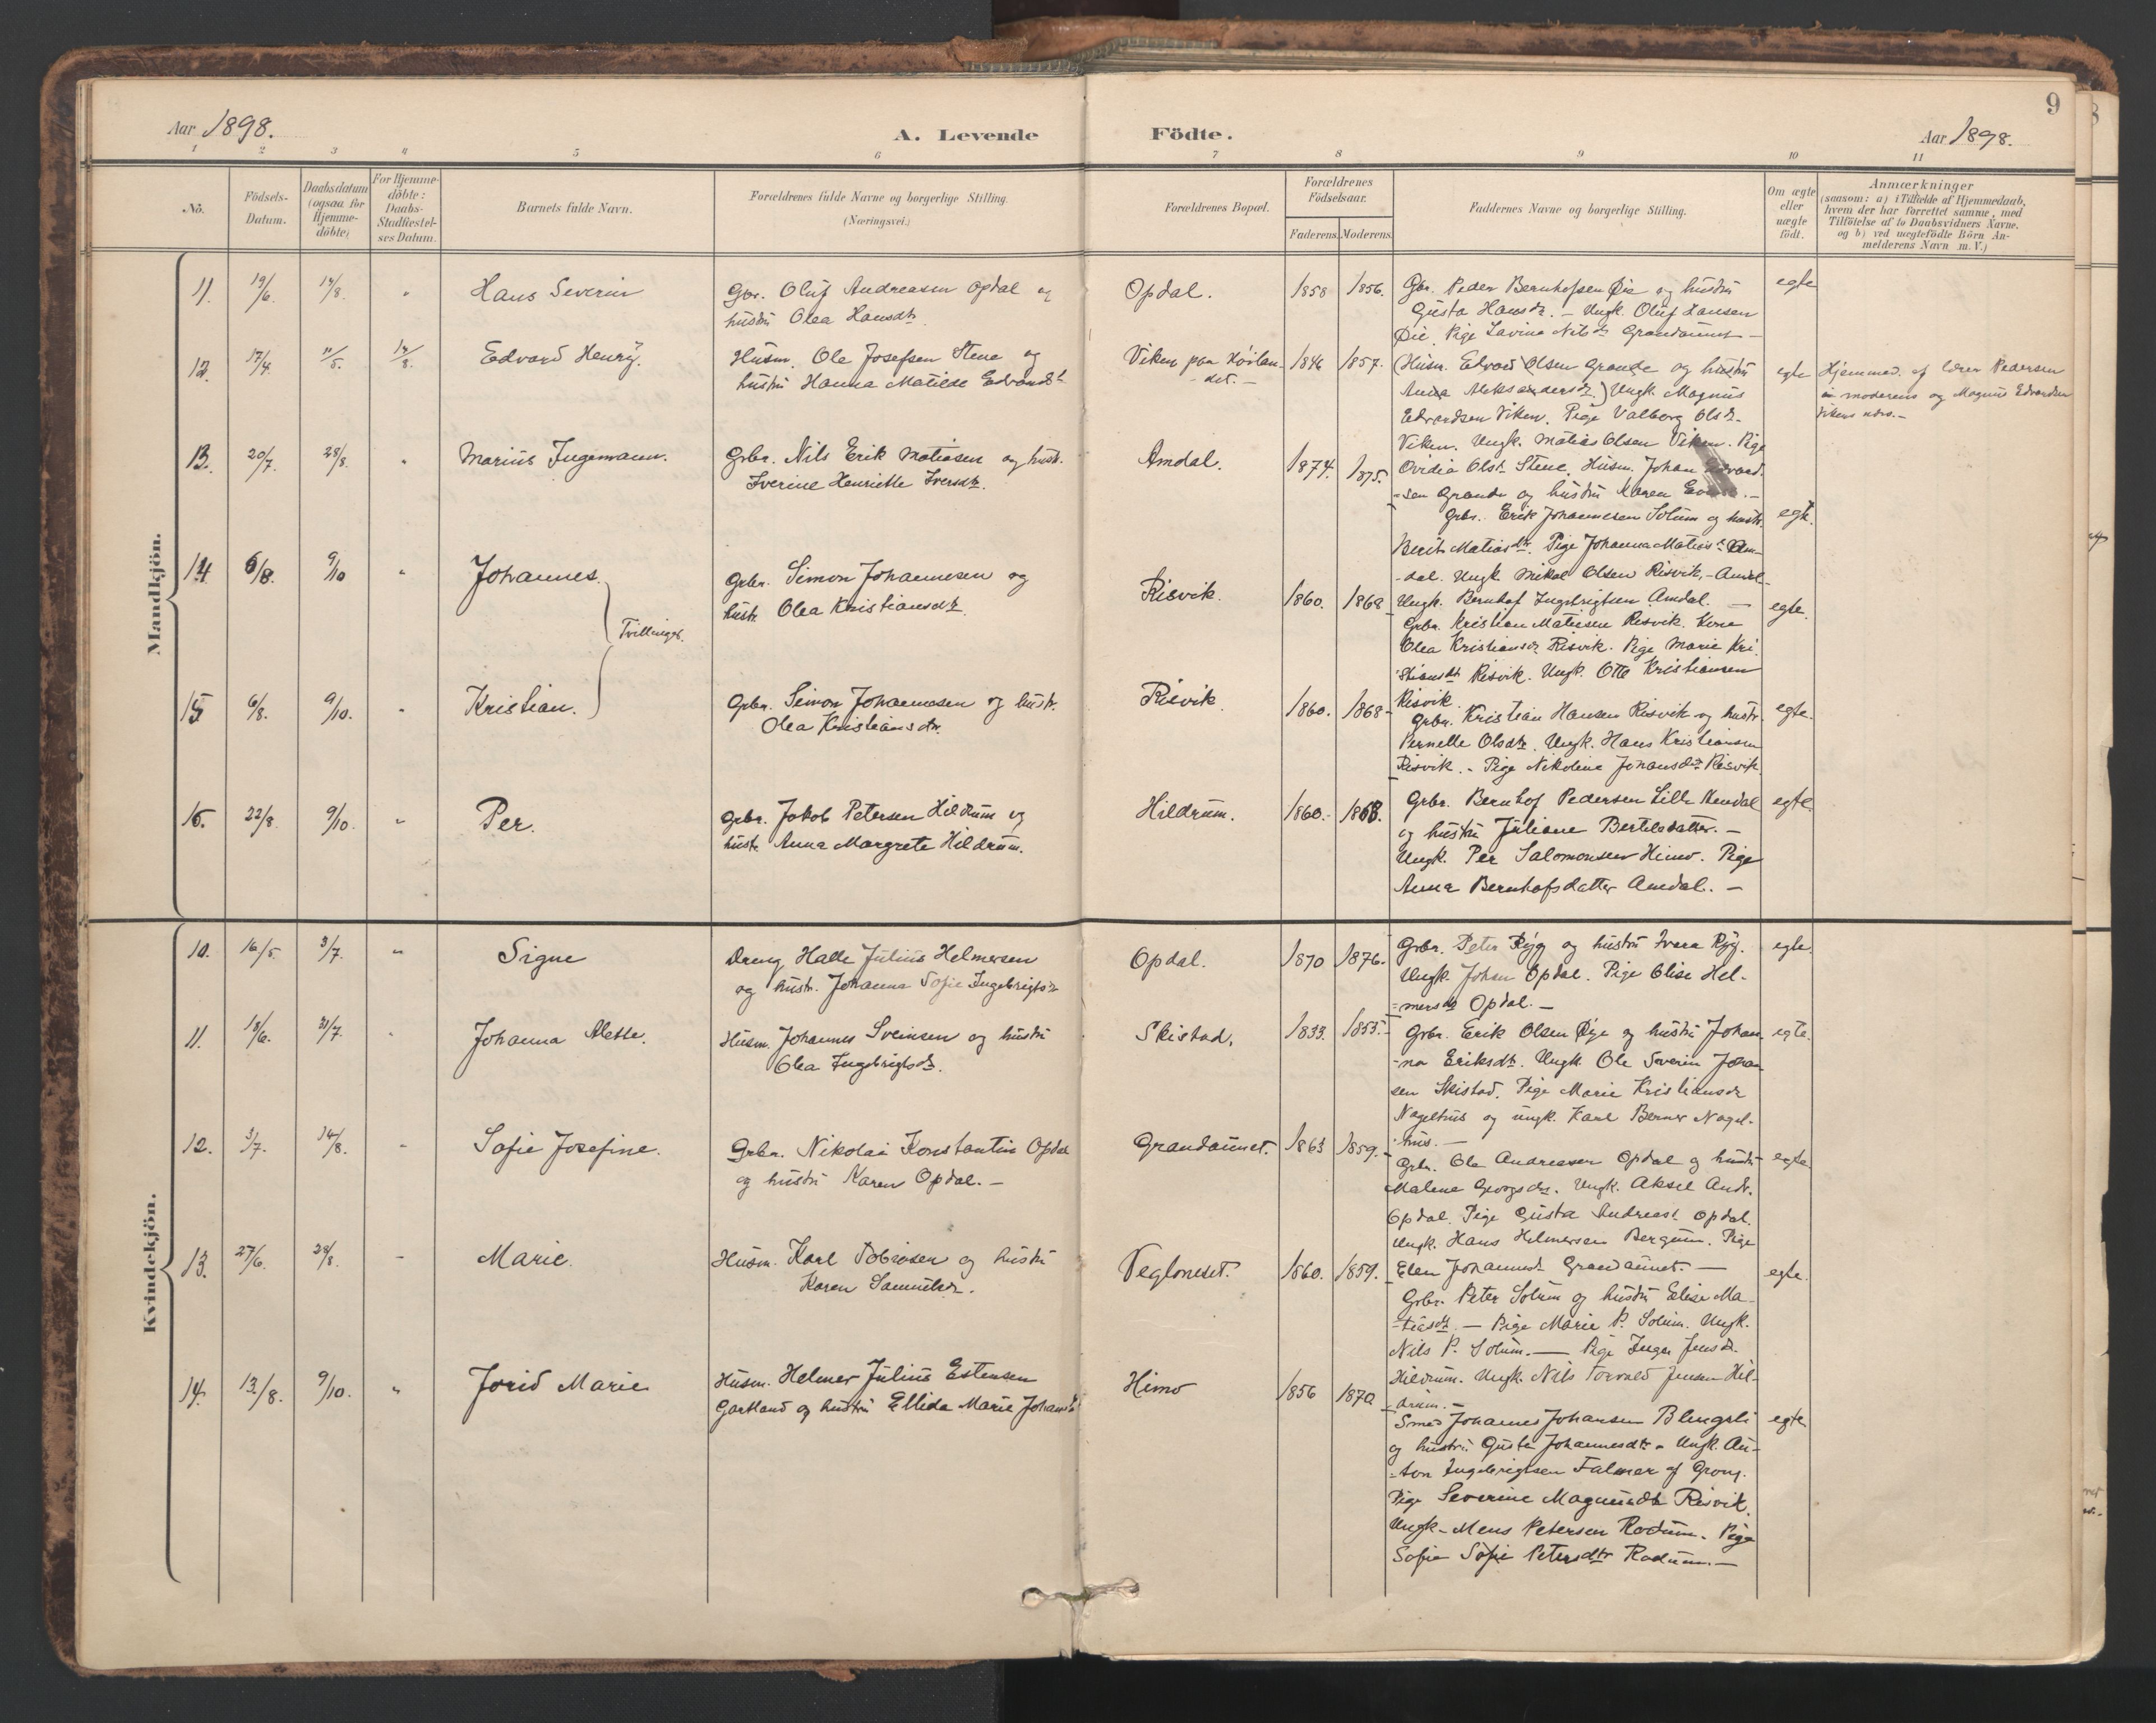 9
Aar 1898.
A. Levende Födte.
Aar 1898.
1 2 3 4 5 6 7 8 9 10 11
No.
Födsels-
Datum.
Daabsdatum
(ogsaa for
Hjemme-
döbte)
For Hjemme-
döbte:
Daabs-
Stadfæstel-
ses Datum.
Barnets fulde Navn.
Forældrenes fulde Navne og borgerlige Stilling.
(Næringsvei.)
Forældrenes Bopæl.
Forældrenes
Födselsaar.
Faderens. Moderens.
Faddernes Navne og borgerlige Stilling.
Om ægte
eller
uægte
födt.
Anmærkninger
(saasom: a) i Tilfælde af Hjemmedaab,
hvem der har forrettet samme, med
Tilföielse af to Daabsvidners Navne,
og b) ved uægtefödte Börn An-
melderens Navn m. V.)
Mandkjön.
11. 19/6. 14/8. " Hans Severin
Gbr. Oluf Andreasen Opdal og
hustru Olea Hansdtr.
Opdal. 1858 1856.
Gbr. Peder Bernhofsen Øie og hustru
Gusta Hansdr. - Ungk. Oluf Hansen
Øie, Pige Lavina Nilsdr Grandaunet -
egte
12. 17/4. 11/5. 14/8. Edvard Henry.
Husm. Ole Josefsen Stene og
hustru Hanna Matilde Edvardsdt
Viken paa Høilan-
det. -
1846 1857.
(Husm. Edvard Olsen Grande og hustru
Anna Aleksandersdr.) Ungk. Magnus
Edvardsen Viken. Pige Valborg Olsdr.
Viken. Ungk. Matias Olsen Viken. Pige
Ovidia Olsdr Stene. Husm. Johan Edvard-
sen Grande og hustru Karen
egte
Hjemmed. af lærer Pedersen
moderens og Magnus Edvardsen
Vikens nærv. -
13. 20/7. 28/8. " Marius Ingemann.
Grbr. Nils Erik Matiasen og hustr.
Iverine Henriette Iversdtr.
Amdal. 1874. 1875.
Grbr. Erik Johannesen Solum og hustr.
Berit Matiasdtr. Pige Johanna Matiasdr Am-
dal. Ungk. Mikal Olsen Risvik, - Amdal.
Ungk. Bernhof Ingebrigtsen Amdal. -
egte.
14. 6/8. 9/10 " Johannes.
Tvillinger.
Grbr. Simon Johannesen og
hustr. Olea Kristiansdtr.
Risvik. 1860. 1868
Grbr. Kristian Matiesen Risvik. Kone
Olea Kristiansdr Risvik. Pige Marie Kri-
stiansdt Risvik. Ungk. Otto Kristiansen
Risvik.
egte.
15 6/8. 9/10. " Kristian.
Grbr. Simon Johannesen og hustr.
Olea Kristiansdtr.
Risvik 1860. 1868
Grbr. Kristian Hansen Risvik og hustr.
Pernelle Olsdtr. Ungk. Hans Kristiansen
Risvik. - Pige Nikoline Johansdtr Risvik.
egte.
16. 22/8. 9/10. " Per.
Grbr. Jakob Petersen Hildrum og
hustr. Anna Margrete Hildrum.
Hildrum. 1860. 1868.
Grbr. Bernhof Pedersen Lille Amdal
og hustru Juliane Bertelsdatter. -
Ungk. Per Salomonsen Himo. Pige
Anna Bernhofsdatter Amdal. -
egte.
Kvindekjön.
10. 16/5 3/7. " Signe
Dreng Halle Julius Helmersen
og hustr. Johanna Sofie Ingebrigtsdr
Opdal. 1870 1876.
Grbr. Peter Rygg og hustru Ivara Rygg.
Ungk. Johan Opdal. Pige Elise Hel-
mersdtr Opdal. -
egte.
11. 18/6. 31/7. " Johanna Alette.
Husm. Johannes Sveinsen og hustru
Olea Ingebrigtsdr.
Skistad. 1833. 1855.
Grbr. Erik Olsen Øye og hustru Johan-
na Eriksdtr. Ungk. Ole Severin Johan-
sen Skistad. Pige Marie Kristiansdr
Nagelhus og ungk. Karl Berner Nagel-
hus. -
egte.
12. 3/7. 14/8. " Sofie Josefine.
Grbr. Nikolai Konstantin Opdal
og hustru Karen Opdal. -
Grandaunet. 1863 1859.
Grbr. Ole Andreasen Opdal og hustru
Malene Georgsdr. Ungk. Aksel Andr.
Opdal. Pige Gusta Andreasd. Opdal.
Ungk. Hans Helmersen Bergum. Pige
Elen Johannesdr Grandaunet. -
egte
13. 27/6. 28/8. " Marie.
Husm. Karl Tobiasen og hustru
Karen Samuelsdr.
Vegloneset. 1860. 1859.
Grbr. Peter Solum og hustru Elise Ma-
tiasdt. - Pige Marie P. Solum. Ungk.
Nils P. Solum. - Pige Inger Jensdr.
Hildrum. Ungk. Nils Torvald Jensen Hil-
drum. -
egte.
14. 13/8. 9/10. " Jorid Marie
Husm. Helmer Julius Estensen
Gartland og hustru Ellida Marie Johansdt
Himo 1856 1870
Smed Johannes Johansen Blengsli
og hustru Gusta Johannesdtr. Ungk. An-
ton Ingebrigtsen Falmer af Grong.
Pige Severine Magnusdtr Risvik.
Ungk. Mens Petersen Rodum. Pige
Sofie Sofie Petersdtr Rodum. -
egte